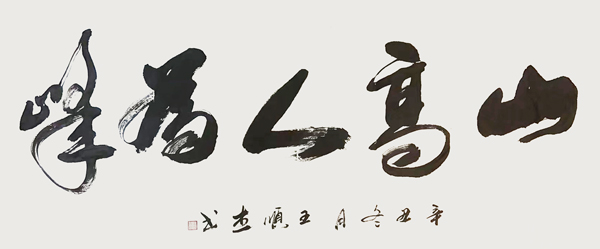 山高人為峰
辛丑冬月王順杰书